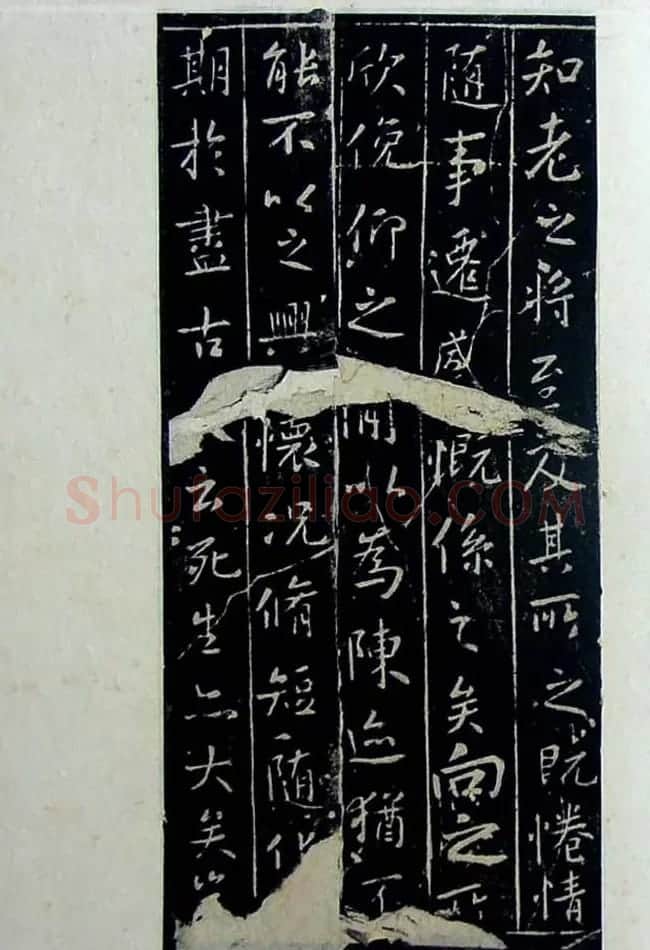 知老之將至及其所之既惓情
随事遷感慨係之矣向之所
欣俛仰之間以為陳迹猶不
能不以之興懷況脩短随化
期於盡古云死生亦大矣豈
Shufaziliao.COM